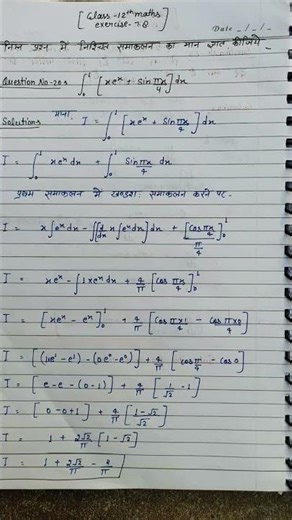 [Class-12th maths
exercise-7.8]
Date _/_/_
निम्न प्रश्न में निश्चित समाकलन का मान ज्ञात कीजिये
Question No-20 ∫₀¹ [xeˣ + Sin πx/4] dx
Solution:- माना I = ∫₀¹ [xeˣ + Sin πx/4] dx
I = ∫₀¹ xeˣ dx + ∫₀¹ Sin πx/4 dx
प्रथम समाकलन में खण्डशः समाकलन करने पर
I = x∫eˣ dx - ∫[d/dx x ∫eˣ dx] dx + [Cos πx/4]₀¹ / π/4
I = xeˣ - ∫1xeˣ dx + 4/π [Cos πx/4]₀¹
I = [xeˣ - eˣ]₀¹ + 4/π [Cos πx1/4 - Cos πx0/4]
I = [(1e¹ - e¹) - (0e⁰ - e⁰)] + 4/π [Cos π/4 - Cos 0]
I = [e - e - (0 - 1)] + 4/π [1/√2 - 1]
I = [0 - 0 + 1] + 4/π [1-√2/√2]
I = 1 + 2√2/π [1 - √2]
I = 1 + 2√2/π - 4/π